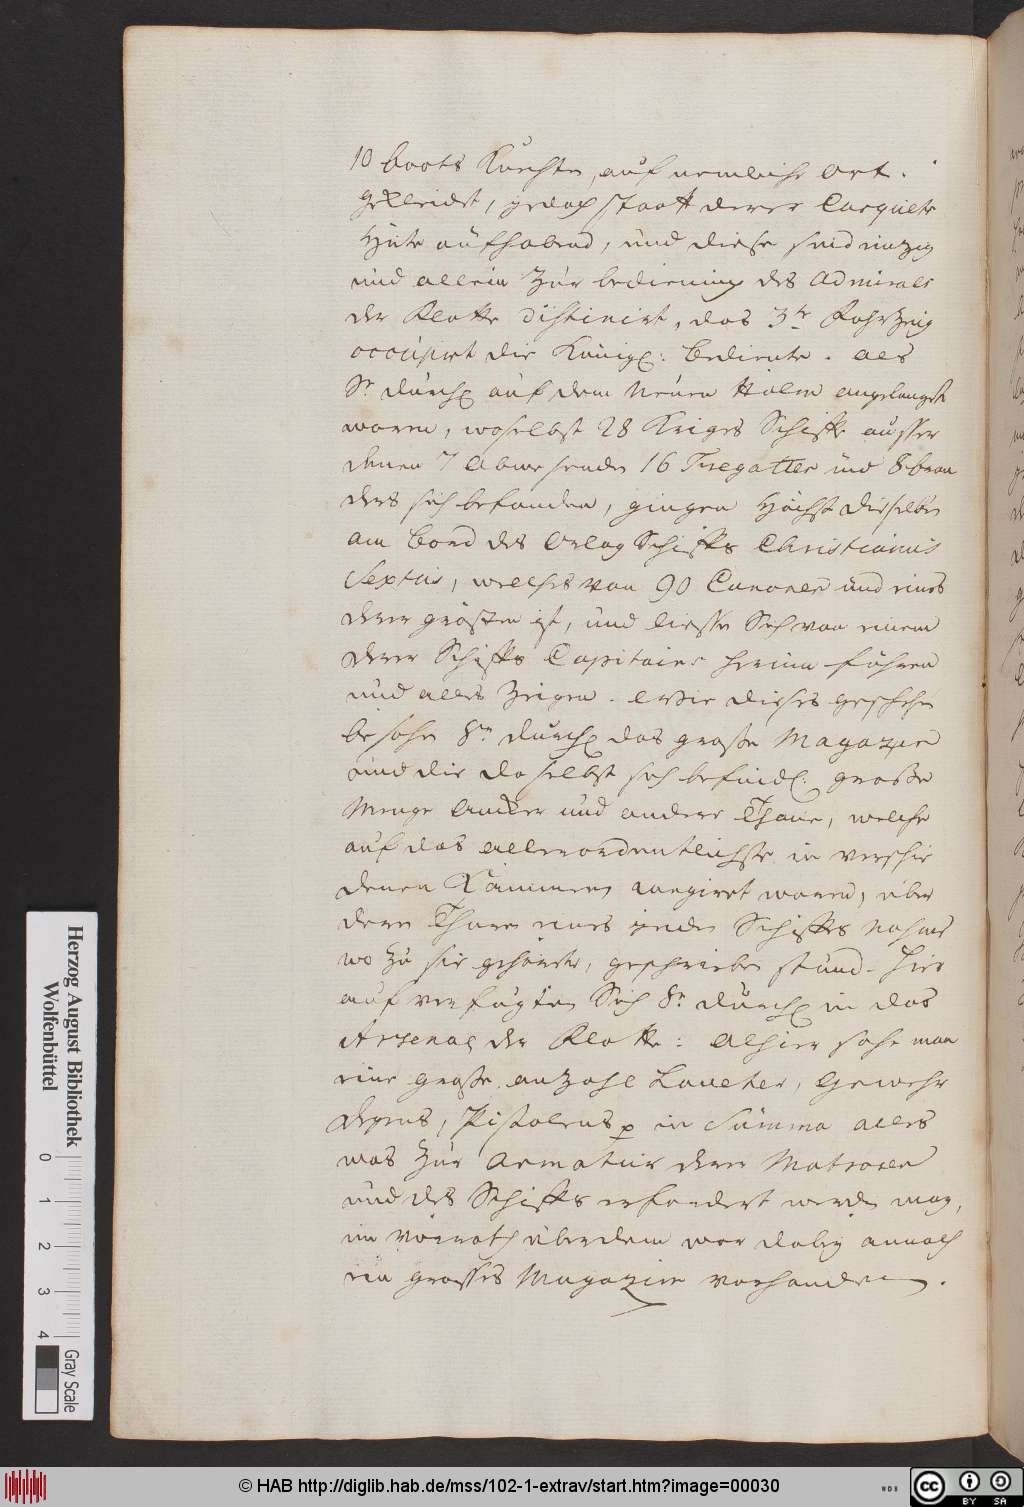 10 boots Knechte, auf nemliche Art.
gekleidet, jedoch statt derer Casquets
Hüte aufhabend, und diese sind eintzig
und allein zur bedienung des Admirals
der Flotte distinirt, das 3te Fahrzeüg
occupirt die Königl: Bediente. Als
Sr. Durchl auf dem Neuen Holm angelanget
waren, woselbst 28 Kriges Schiffe ausser
denen 7 Abwesenden 16 Fregatten und 8 bran
ders sich befanden, gingen Höchst Dieselben
am Bord des Orlog Schiffes Christianus
Sextus, welches von 90 Canonen und eines
derer grösten ist, und liessen Sich von einem
derer Schiffs Capitains herum führen
und alles Zeigen. Wie dieses geschehen
besahen Sr. Durchl das große Magazin
und die daselbst sich befindl. große
Menge Ancker und andere Thaue, welche
auf das allerordentlichste in verschie
denen Kammern rangiret waren, über
deren Thüren eines jeden Schiffes Nahme
wo zu sie gehörete, geschrieben stund. Hier
auf verfügten Sich Sr. Durchl in das
Arsenal der Flotte: Alhier sahe man
eine große anzahl , Gewehr
degens, Pistolens p in Summa alles
was zur Armatur derer Matrosen
und des Schiffs erfordert werden mag,
im Vorrath überdem war dabey annoch
ein grosses Magazin vorhanden.
Herzog August Bibliothek
Wolfenbüttel
0 1 2 3 4
Gray Scale
© HAB http://diglib.hab.de/mss/102-1-extrav/start.htm?image=00030
WDB
cc BY SA